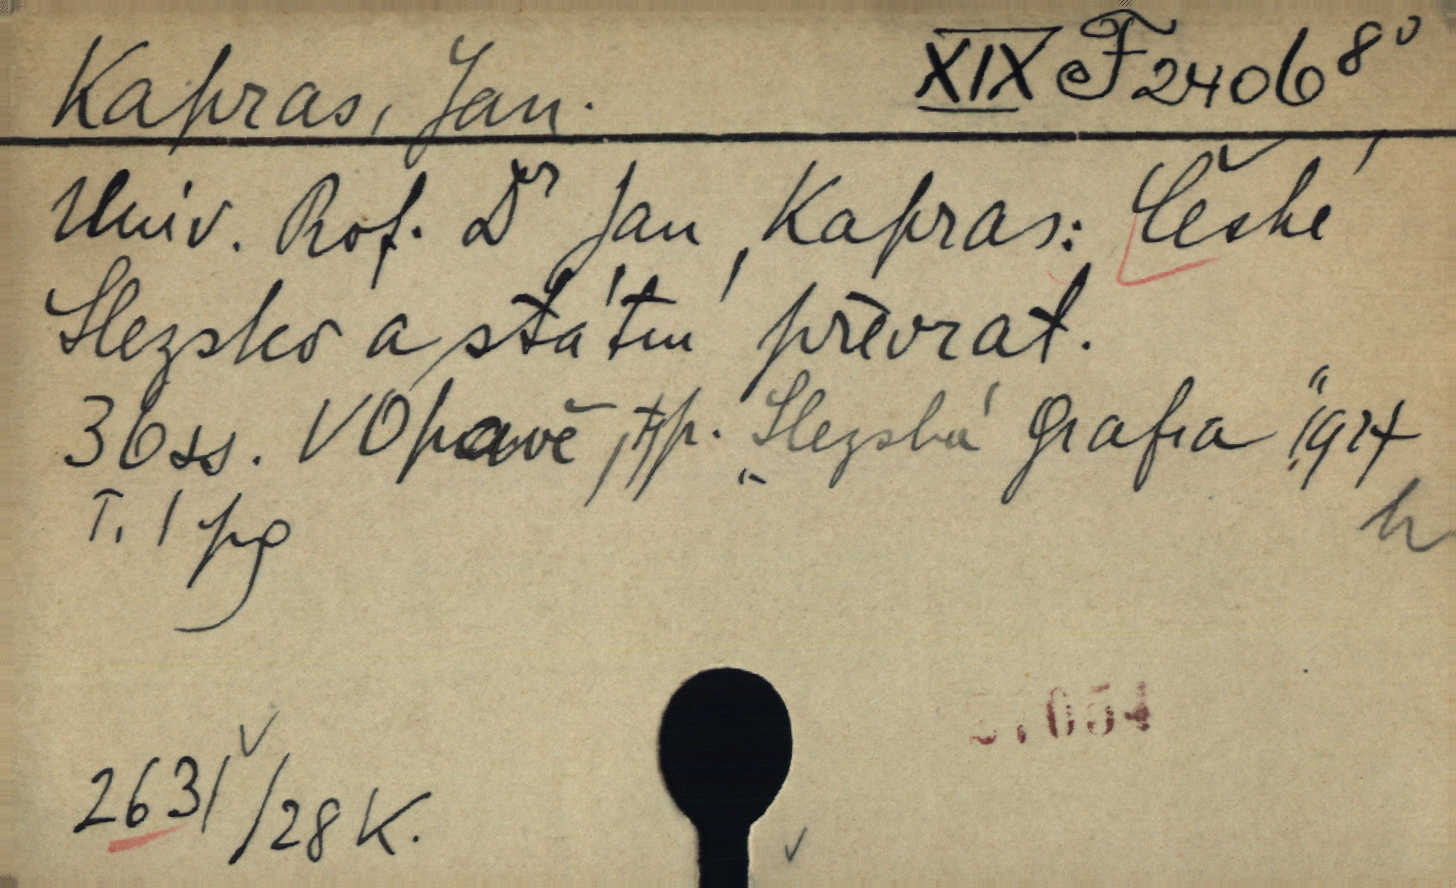 Kapras, Jan. XIX F 2406 8°
Univ. Prof. Dr Jan Kapras: České
Slezsko a státní převrat.
36 ss. V Opavě, typ. „Slezská Grafia“, 1924
T. 1 pg
h
054
2631/28 K.